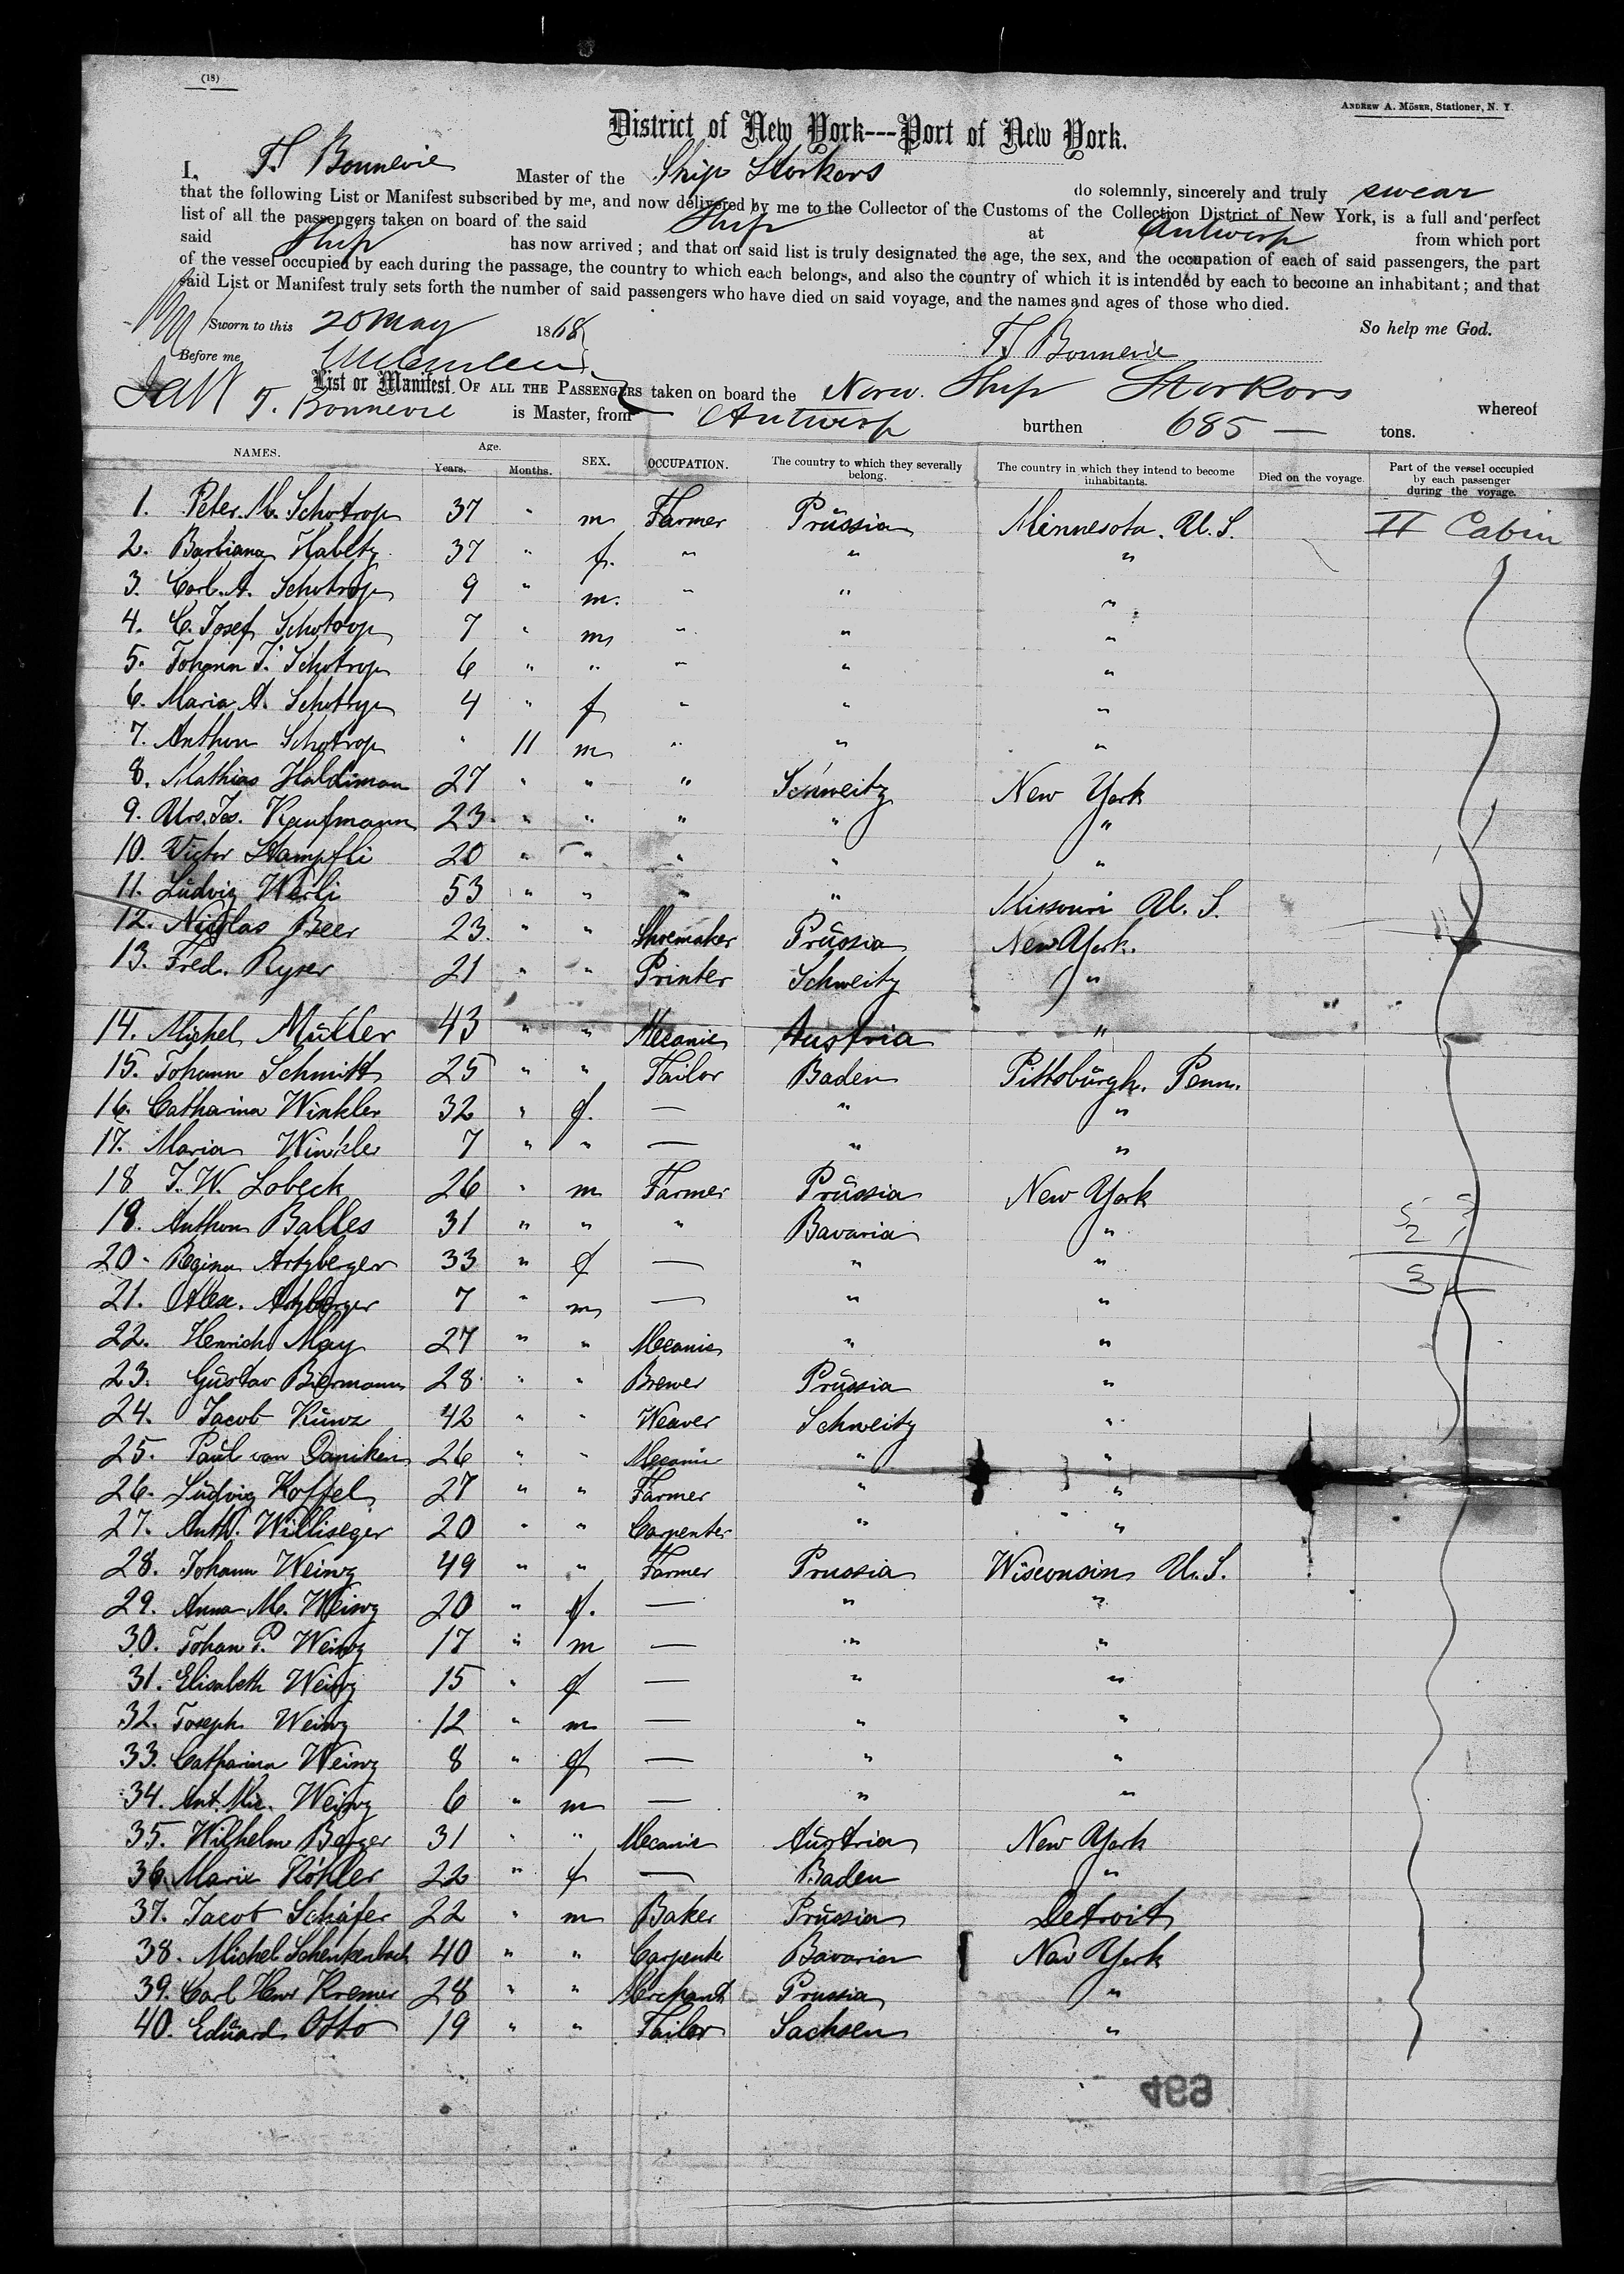 (18)
ANDREW A. MÖSER, Stationer, N. Y.
District of New York---Port of New York.
I, T. J. Bonnevie Master of the Ship Storkors do solemnly, sincerely and truly swear
that the following List or Manifest subscribed by me, and now delivered by me to the Collector of the Customs of the Collection District of New York, is a full and perfect
list of all the passengers taken on board of the said Ship at Antwerp from which port
said Ship has now arrived; and that on said list is truly designated the age, the sex, and the occupation of each of said passengers, the part
of the vessel occupied by each during the passage, the country to which each belongs, and also the country of which it is intended by each to become an inhabitant; and that
said List or Manifest truly sets forth the number of said passengers who have died on said voyage, and the names and ages of those who died.
Sworn to this 20 May 1868 So help me God.
Before me T. J. Bonnevie
List or Manifest OF ALL THE PASSENGERS taken on board the Norw. Ship Storkors whereof
T. Bonnevie is Master, from Antwerp burthen 685 — tons.
NAMES. Age. Years. Months. SEX. OCCUPATION. The country to which they severally belong. The country in which they intend to become inhabitants. Died on the voyage. Part of the vessel occupied by each passenger during the voyage.
1. Peter. M. Schotrop 37 " m Farmer Prússia Minnesota. U. S. II Cabin
2. Barbiana Habetz 37 " f. " " "
3. Carl. A. Schotrop 9 " m. " " "
4. C. Josef Schotrop 7 " m " " "
5. Johann J. Schotrop 6 " " " " "
6. Maria A. Schotrop 4 " f " " "
7. Anthon Schotrop " 11 m " " "
8. Mathias Haldiman 27 " " " Schweitz New York
9. Urs. Jos. Kaufmann 23 " " " " "
10. Victor Stampfli 20 " " " " "
11. Ludvig Werli 53 " " " " Missouri U. S.
12. Nicolas Beer 23. " " Shoemaker Prússia New York.
13. Fred. Ryser 21 " " Printer Schweitz "
14. Michel Müller 43 " " Mecanic Austria "
15. Johann Schmitt 25 " " Tailor Baden Pittsbürgh. Penn.
16. Catharina Winkler 32 " f. — " "
17. Maria Winkler 7 " " — " "
18 J. W. Lobeck 26 " m Farmer Prússia New York
19. Anthon Balles 31 " " " Bavaria "
20. Regina Artzberger 33 " f — " "
21. Alex. Artzberger 7 " m — " "
22. Henrich May 27 " " Mecanic " "
23. Gústav Biermann 28 " " Brewer Prússia "
24. Jacob Kúnz 42 " " Weaver Schweitz "
25. Paúl von Daniken 26 " " Mecanic " "
26. Lúdvig Koffel 27 " " Farmer " "
27. Anth. Williseger 20 " " Carpenter " "
28. Johann Weinz 49 " " Farmer Prussia Wisconsin U. S.
29. Anna M. Weinz 20 " f. — " "
30. Johan P. Weinz 17 " m — " "
31. Elisabeth Weinz 15 " f — " "
32. Joseph Weinz 12 " m — " "
33. Catharina Weinz 8 " f — " "
34. Ant. Mic. Weinz 6 " m — " "
35. Wilhelm Berger 31 " " Mecanic Aústria New York
36. Marie Köhler 22 " f — Baden "
37. Jacob Schäfer 22 " m Baker Prússia Detroit
38. Michel Schenkenbach 40 " " Carpente Bavaria New York
39. Carl Henr Kremer 28 " " Merchant Prussia "
40. Edúard Otto 19 " " Tailor Sachsen "